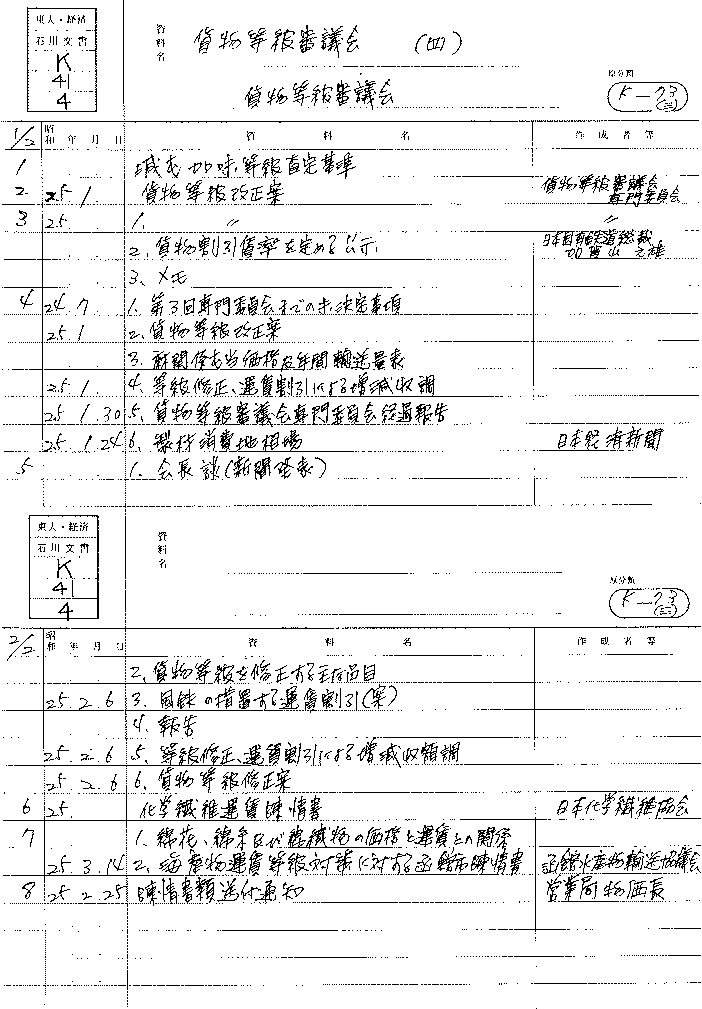 東大・経済
石川文書
K
41
4
資料名
貨物等級審議会 (四)
貨物等級審議会
原分類
K-23
(三)
1/2 昭和 年 月 日 資 料 名 作 成 者 等
1 減を加味、等級査定基準
2 25 1 貨物等級改正案 貨物等級審議会専門委員会
3 25 1. 〃 〃
2. 貨物割引賃率を定める公示. 日本国有鉄道総裁 加賀山之雄
3. メモ
4 24 7 1. 第3回専門委員会までの未決定事項
25 1 2. 貨物等級改正案
3. 新関係もち当価格及年間輸送量表
25 1 4. 等級修正、運賃割引による増減収調
25 1 30 5. 貨物等級審議会専門委員会経過報告
25 1 24 6. 素材消費地相場 日本経済新聞
5 1. 会長談(新聞発表)
東大・経済
石川文書
K
41
4
資料名
原分類
K-23
(三)
2/2 昭和 年 月 日 資 料 名 作 成 者 等
2. 貨物等級を修正する主な品目
25 2 6 3. 国鉄の措置する運賃割引(案)
4. 報告
25 2 6 5. 等級修正、運賃割引による増減収額調
25 2 6 6. 貨物等級修正案
6 25 化学繊維運賃陳情書 日本化学繊維協会
7 1. 綿花、綿糸及び綿織物の価格と運賃との関係
25 3 14 2. 海産物運賃等級対議に対する函館市陳情書 函館水産物輸送協議会
8 25 2 25 陳情書類送付通知 営業局物価長